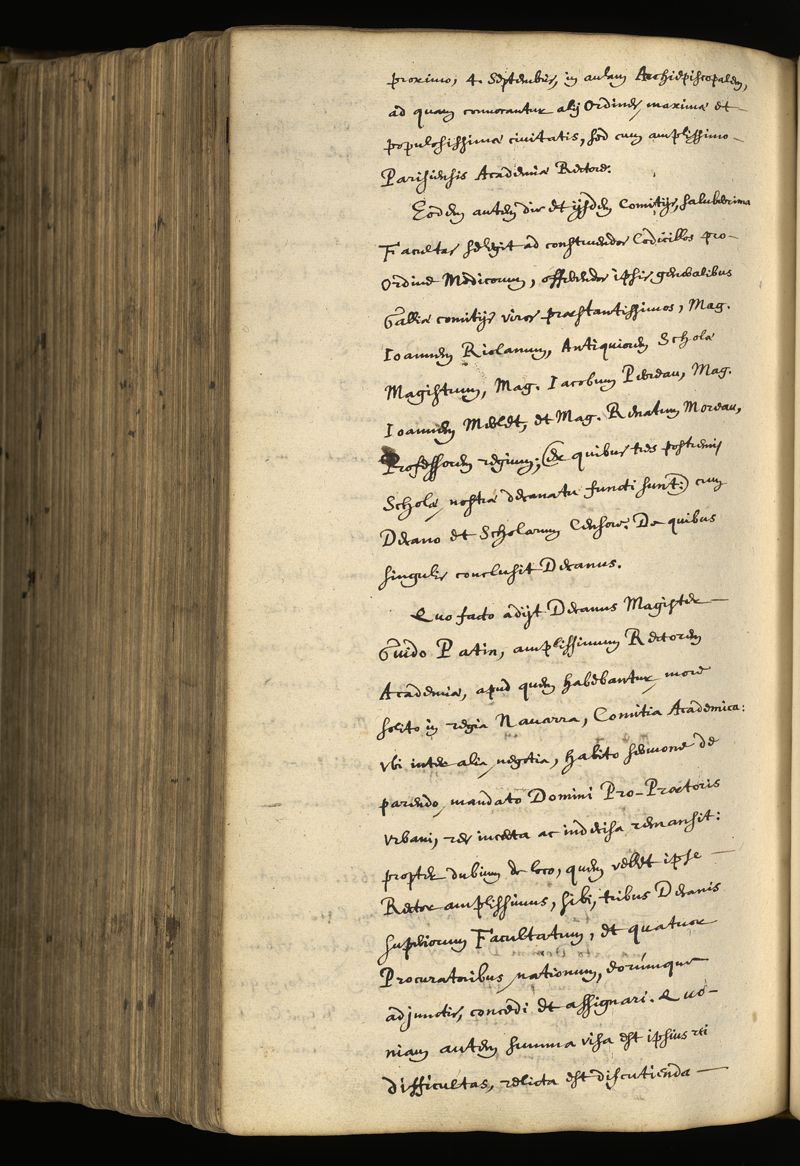 proximo, 4. Septembris, in aulam Archiepiscopalem,
ad quam convocantur alij Ordines, maximæ et
populosissimæ civitatis, sed cum amplissimo
Parisiensis Academiæ Rectore.
Eodem autem die et ijsdem Comitijs, saluberrima
Facultas selegit ad construendos Codicillos pro
Ordine Medicorum, offerendos ipsis generalibus
Galliæ comitijs viros præstantissimos, Mag.
Ioannem Riolanum, Antiquiorem Scholæ
Magistrum, Mag. Iacobum Perreau, Mag.
Ioannem Merlet, et Mag. Renatum Moreau,
Professorem regium; (ex quibus tres postremi
Scholæ nostræ decanatu functi sunt:) cum
Decano et Scholarum Censore. De quibus
singulis conclusit Decanus.
Quo facto adijt Decanus Magister
Guido Patin, amplissimum Rectorem
Academiæ, apud quem habebantur more
solito in regia Navarra, Comitia Academica:
vbi inter alia negotia, habito sermone de
parendo mandato Domini Pro-Prætoris
vrbani, res incerta ac indecisa remansit:
propter dubium de loco, quem vellet ipse
Rector amplissimus, sibi, tribus Decanis
superiorum Facultatum, et quatuor
Procuratoribus nationum, eorúmque
adjunctis, concedi et assignari. Quo-
niam autem summa visa est ipsius rei
difficultas, relicta est discutienda